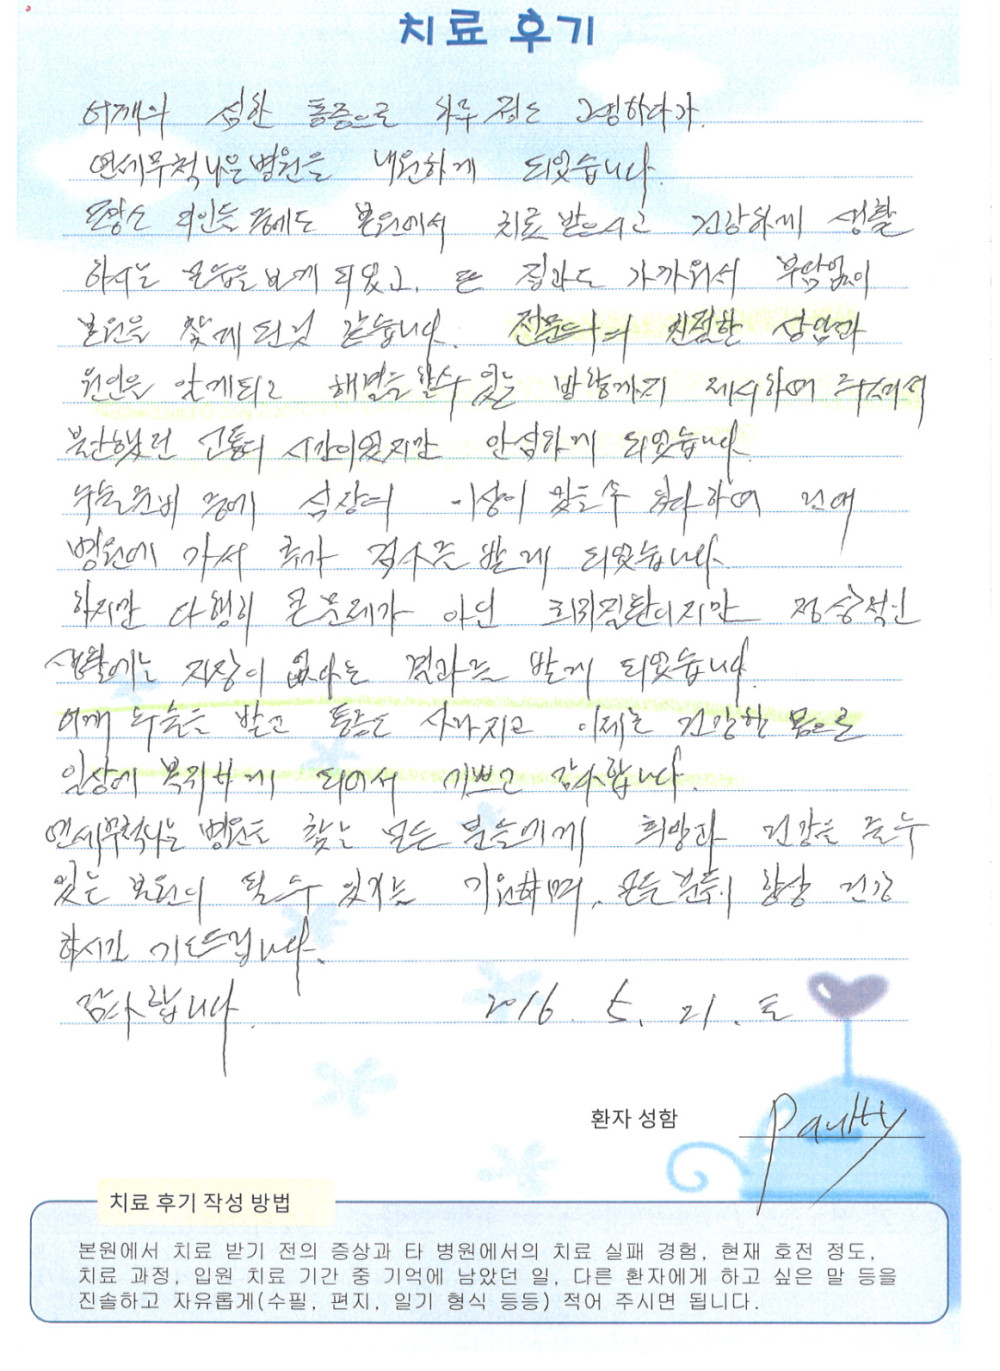 치료 후기
어깨의 심한 통증으로 하루 정도 고생하다가
연세무척나은병원을 내원하게 되었습니다.
지인들 중에도 본원에서 치료 받으시고 건강하게 생활
하시는 모습을 보게 되었고, 또 집과도 가까워서 부담없이
본원을 찾게 된것 같습니다. 전문의의 친절한 상담과
원인을 알게되고 해결을 할수 있는 방향까지 제시하여 주셔서
불안했던 고통의 시간이었지만 안심하게 되었습니다.
수술준비 중에 심장에 이상이 있을수 있다하여
병원에 가서 추가 검사를 받게 되었습니다.
하지만 다행히 큰문제가 아닌 희귀질환이지만 정상적인
생활에는 지장이 없다는 결과를 받게 되었습니다.
어깨 수술을 받고 통증도 사라지고 이제는 건강한 몸으로
일상에 복귀하게 되어서 기쁘고 감사합니다.
연세무척나은 병원을 찾는 모든 분들에게 희망과 건강을 줄수
있는 본원이 될수 있기를 기원하며, 모든분들이 항상 건강
하시길 기도드립니다.
감사합니다. 2016. 5. 21. 토
환자 성함
치료 후기 작성 방법
본원에서 치료 받기 전의 증상과 타 병원에서의 치료 실패 경험, 현재 호전 정도,
치료 과정, 입원 치료 기간 중 기억에 남았던 일, 다른 환자에게 하고 싶은 말 등을
진솔하고 자유롭게(수필, 편지, 일기 형식 등등) 적어 주시면 됩니다.